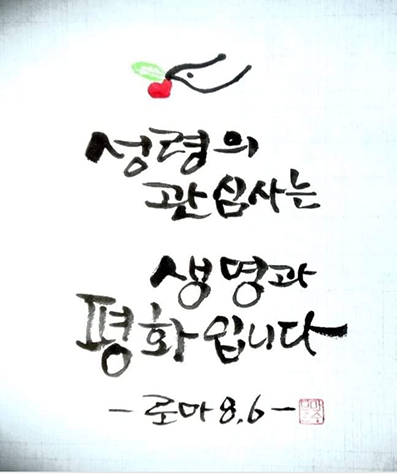 성령의
관심사는
생명과
평화입니다
-로마 8,6-